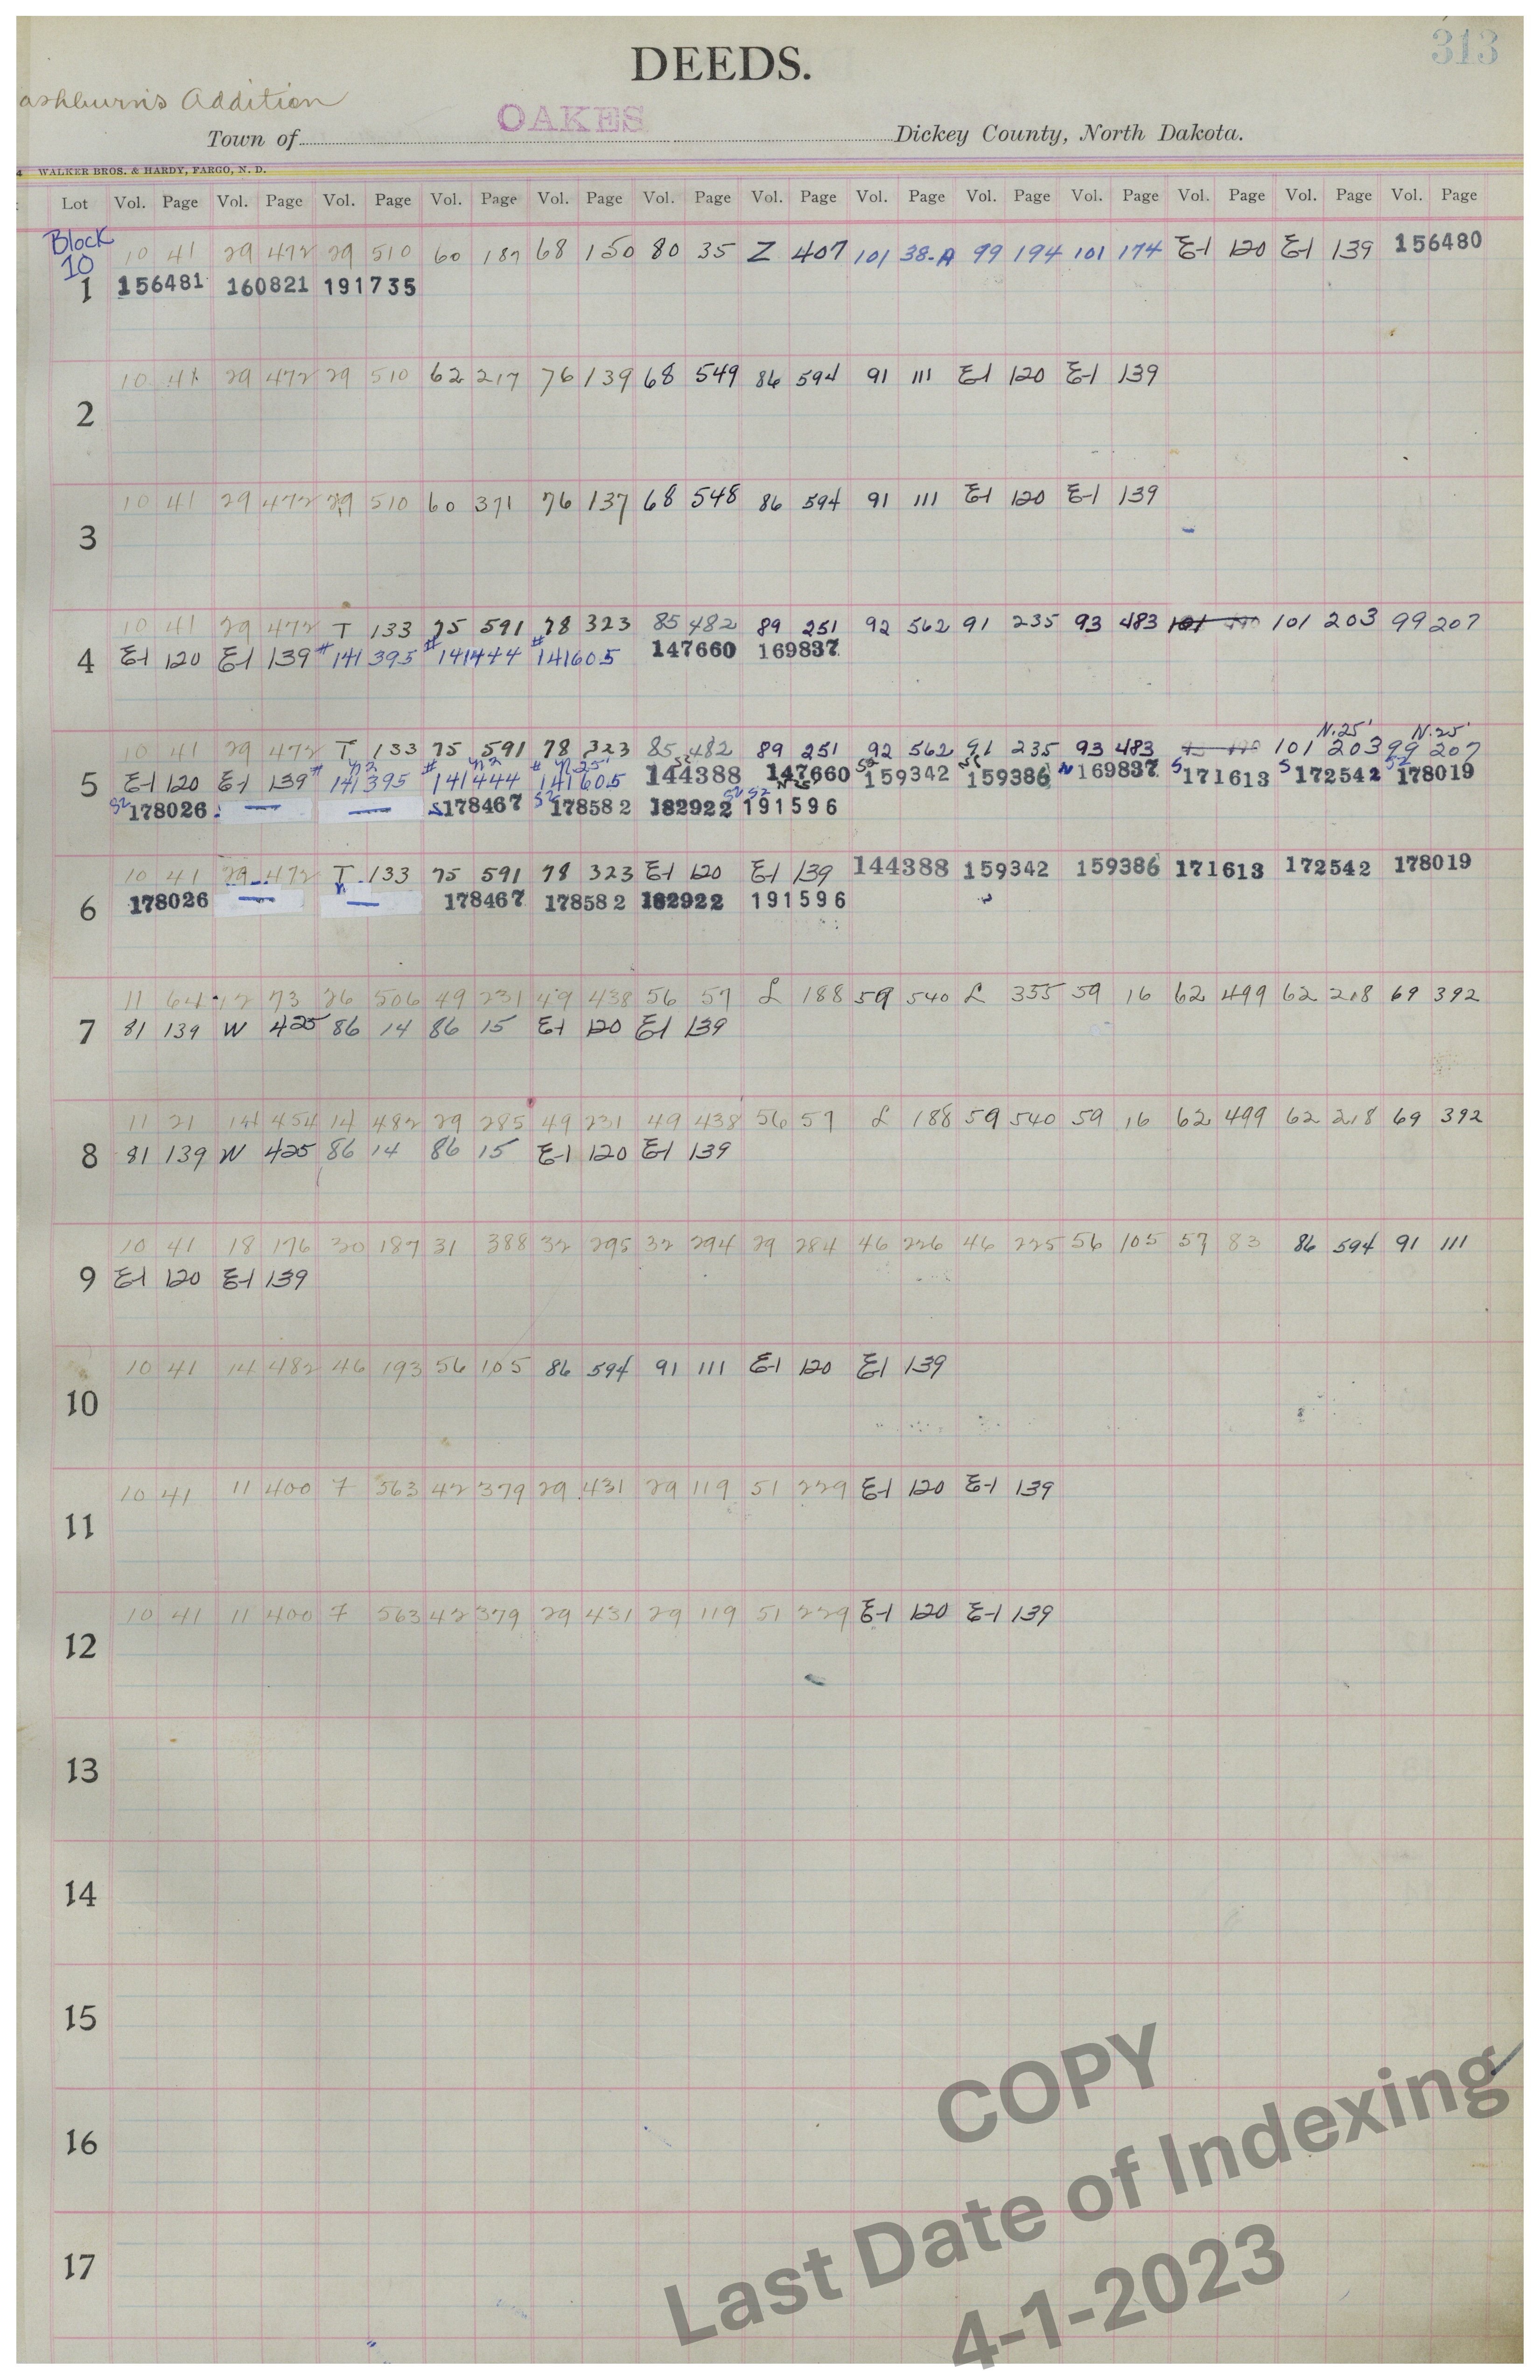 313
DEEDS.
ashburn's Addition
Town of OAKES Dickey County, North Dakota.
4 WALKER BROS. & HARDY, FARGO, N. D.
Lot Vol. Page Vol. Page Vol. Page Vol. Page Vol. Page Vol. Page Vol. Page Vol. Page Vol. Page Vol. Page Vol. Page Vol. Page Vol. Page
Block
10 10 41 29 472 29 510 60 187 68 150 80 35 Z 407 101 38-A 99 194 101 174 E-1 120 E-1 139 156480
1 156481 160821 191735
10 41 29 472 29 510 62 217 76 139 68 549 86 594 91 111 E-1 120 E-1 139
2
10 41 29 472 29 510 60 371 76 137 68 548 86 594 91 111 E-1 120 E-1 139
3
10 41 29 472 T 133 75 591 78 323 85 482 89 251 92 562 91 235 93 483 101 101 203 99 207
4 E-1 120 E-1 139 #141395 #141444 #141605 147660 169837
N.25' N.25'
10 41 29 472 T 133 75 591 78 323 85 482 89 251 92 562 91 235 93 483 101 203 99 207
N2 N2 N.25'
5 E-1 120 E-1 139 #141395 #141444 #141605 144388 147660 S2 159342 159386 N 169837 S 171613 S 172542 S2 178019
S2 178026 — — S 178467 S2 178582 182922 S2 S2 191596
10 41 29 472 T 133 75 591 78 323 E-1 120 E-1 139 144388 159342 159386 171613 172542 178019
6 178026 — — 178467 178582 182922 191596
11 64 12 73 26 506 49 231 49 438 56 57 L 188 59 540 L 355 59 16 62 499 62 218 69 392
7 81 139 W 425 86 14 86 15 E-1 120 E-1 139
11 21 14 454 14 482 29 285 49 231 49 438 56 57 L 188 59 540 59 16 62 499 62 218 69 392
8 81 139 W 425 86 14 86 15 E-1 120 E-1 139
10 41 18 176 30 187 31 388 32 295 32 294 29 284 46 226 46 225 56 105 57 83 86 594 91 111
9 E-1 120 E-1 139
10 41 14 482 46 193 56 105 86 594 91 111 E-1 120 E-1 139
10
10 41 11 400 7 563 42 379 29 431 29 119 51 229 E-1 120 E-1 139
11
10 41 11 400 7 563 42 379 29 431 29 119 51 229 E-1 120 E-1 139
12
13
14
15
16
17
COPY
Last Date of Indexing
4-1-2023